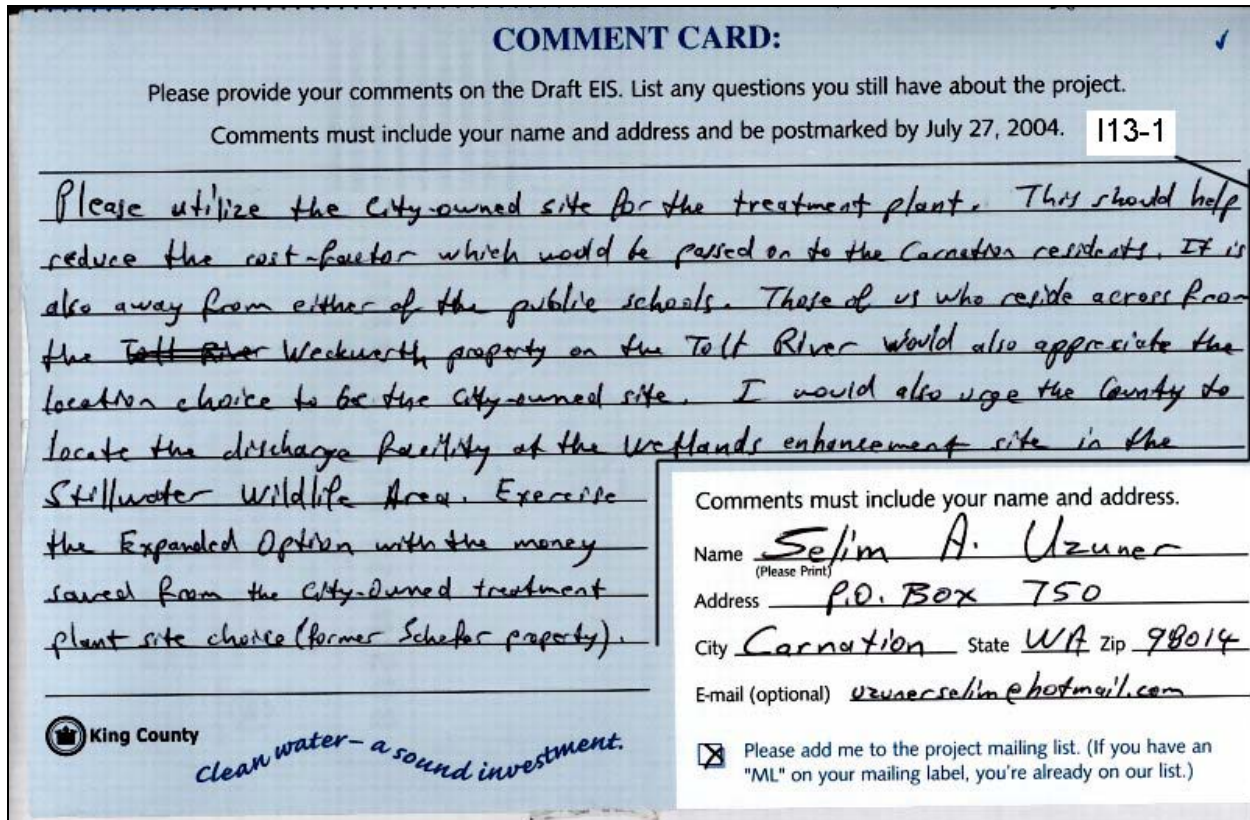 COMMENT CARD:
Please provide your comments on the Draft EIS. List any questions you still have about the project.
Comments must include your name and address and be postmarked by July 27, 2004.
I13-1
Please utilize the City-owned site for the treatment plant. This should help
reduce the cost-factor which would be passed on to the Carnation residents. It is
also away from either of the public schools. Those of us who reside across from
the Tolt River Weckwerth property on the Tolt River would also appreciate the
location choice to be the City-owned site. I would also urge the County to
locate the discharge facility at the wetlands enhancement site in the
Stillwater Wildlife Area. Exercise
the Expanded Option with the money
saved from the City-Owned treatment
plant site choice (former Schefer property).
Comments must include your name and address.
Name Selim A. Uzuner
(Please Print)
Address P.O. Box 750
City Carnation State WA Zip 98014
E-mail (optional) uzunerselim@hotmail.com
King County
Clean water - a sound investment.
Please add me to the project mailing list. (If you have an
"ML" on your mailing label, you're already on our list.)